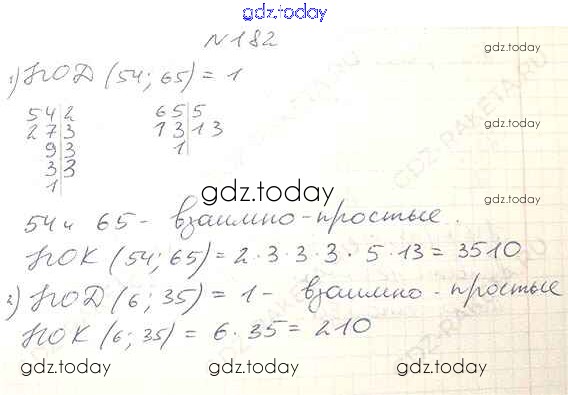 gdz.today
№182
gdz.today
1) НОД (54; 65) = 1
54 | 2   65 | 5
27 | 3   13 | 13
9 | 3   1
3 | 3
1
gdz.today
gdz.today
54 и 65 - взаимно-простые.
gdz.today
НОК (54; 65) = 2·3·3·3·5·13 = 3510
2) НОД (6; 35) = 1 - взаимно-простые
НОК (6; 35) = 6·35 = 210
gdz.today gdz.today gdz.today
GDZ-RAKETA.RU